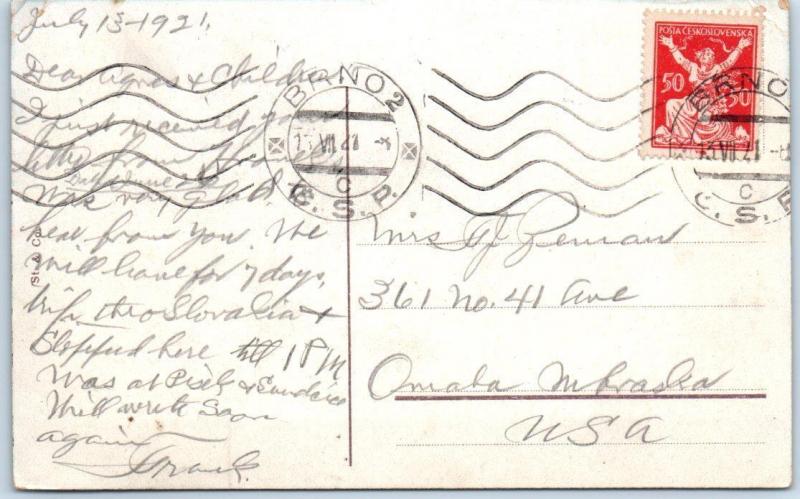 July 13-1921.
Dear Agnes & Children
I just received your
letter from
Dated June 22
Was very glad
hear from you. We
will leave for 7 days,
trip thro Slovakia &
Stopped here till 1 PM
Was at Pisek &
Will write soon
again
Frank.
St. & Co.
BRNO 2
13 VII 21
C
Č.S.P.
POŠTA ČESKOSLOVENSKÁ
50 50
BRNO
13 VII 21 -8
C
Č.S.P.
Mrs J Zeman
361 No. 41 Ave
Omaha Nebraska
USA